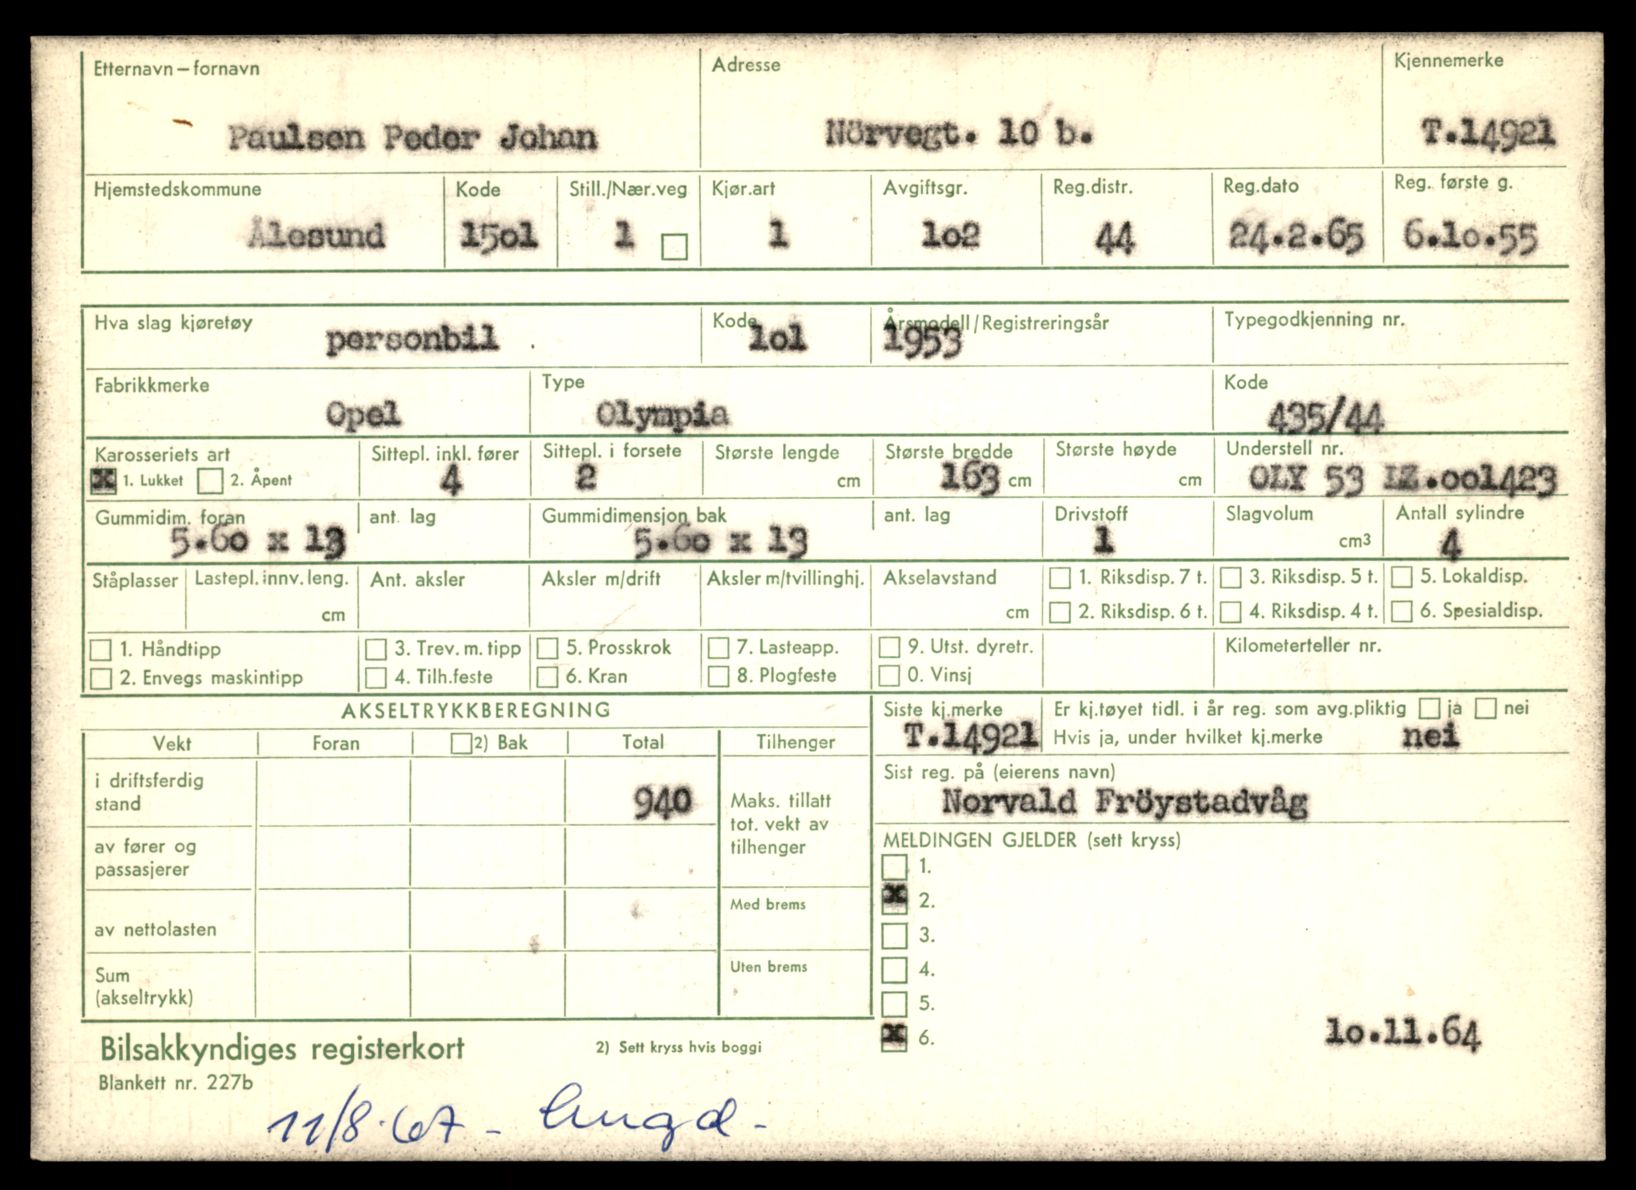 Etternavn – fornavn Adresse Kjennemerke
Paulsen Peder Johan Nörvegt. 10 b. T.14921
Hjemstedskommune Kode Still./Nær.veg Kjør.art Avgiftsgr. Reg.distr. Reg.dato Reg. første g.
Ålesund 15o1 1 1 1o2 44 24.2.65 6.1o.55
Hva slag kjøretøy Kode Årsmodell/Registreringsår Typegodkjenning nr.
personbil 1o1 1953
Fabrikkmerke Type Kode
Opel Olympia 435/44
Karosseriets art Sittepl. inkl. fører Sittepl. i forsete Største lengde Største bredde Største høyde Understell nr.
x 1. Lukket 2. Åpent 4 2 cm 163 cm cm OLY 53 LZ.oo1423
Gummidim. foran ant. lag Gummidimensjon bak ant. lag Drivstoff Slagvolum Antall sylindre
5.6o x 13 5.6o x 13 1 cm3 4
Ståplasser Lastepl. innv. leng. Ant. aksler Aksler m/drift Aksler m/tvillinghj. Akselavstand 1. Riksdisp. 7 t. 3. Riksdisp. 5 t. 5. Lokaldisp.
cm cm 2. Riksdisp. 6 t. 4. Riksdisp. 4 t. 6. Spesialdisp.
1. Håndtipp 3. Trev. m. tipp 5. Prosskrok 7. Lasteapp. 9. Utst. dyretr. Kilometerteller nr.
2. Envegs maskintipp 4. Tilh.feste 6. Kran 8. Plogfeste 0. Vinsj
AKSELTRYKKBEREGNING Siste kj.merke Er kj.tøyet tidl. i år reg. som avg.pliktig ja nei
T.14921 Hvis ja, under hvilket kj.merke nei
Vekt Foran 2) Bak Total Tilhenger
Sist reg. på (eierens navn)
i driftsferdig stand 940 Norvald Fröystadvåg
Maks. tillatt tot. vekt av tilhenger
av fører og passasjerer
MELDINGEN GJELDER (sett kryss)
1.
x 2.
av nettolasten Med brems
3.
4.
Sum (akseltrykk) Uten brems
5.
x 6. 1o.11.64
Bilsakkyndiges registerkort 2) Sett kryss hvis boggi
Blankett nr. 227b
11/8.67 -